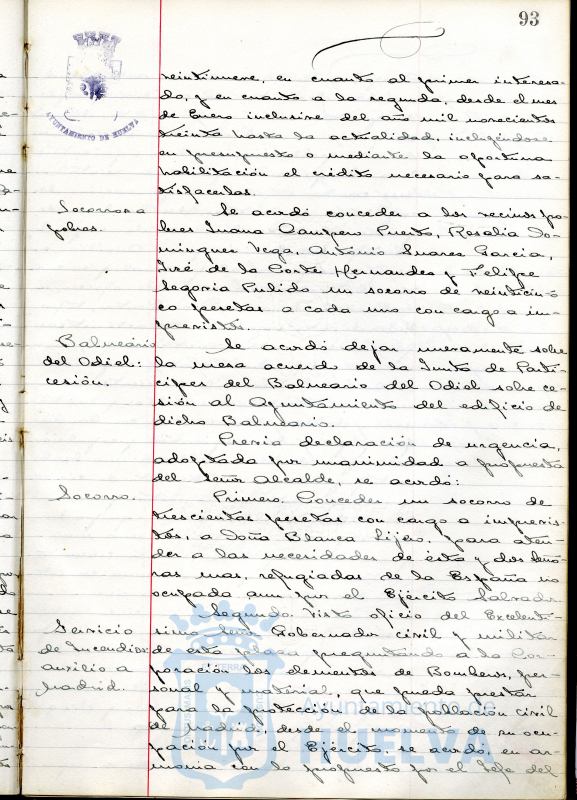 93
AYUNTAMIENTO DE HUELVA
veintinueve, en cuanto al primer interesa-
do, y en cuanto a la segunda, desde el mes
de Enero inclusive del año mil novecientos
treinta hasta la actualidad, incluyéndose
en presupuesto o mediante la oportuna
habilitación el crédito necesario para sa-
tisfacerlas.
Socorros a
pobres.
Se acordó conceder a los vecinos po-
bres Juana Campero Puerto, Rosalia Do-
minguez Vega, Antonio Suarez Garcia,
José de la Corte Hernandez y Felipe
Segovia Pulido un socorro de veinticin-
co pesetas a cada uno con cargo a im-
previstos.
Balneario
del Odiel:
cesión.
Se acordó dejar nuevamente sobre
la mesa acuerdo de la Junta de Partí-
cipes del Balneario del Odiel sobre ce-
sión al Ayuntamiento del edificio de
dicho Balneario.
Previa declaración de urgencia,
adoptada por unanimidad a propuesta
del Señor Alcalde, se acordó:
Socorro.
Primero. Conceder un socorro de
trescientas pesetas con cargo a imprevis-
tos, a Doña Blanca Lijero, para aten-
der a las necesidades de ésta y dos seño-
ras mas, refugiadas de la España no
ocupada aun por el Ejército Salvador
Servicio
de Incendios:
auxilio a
Madrid.
Segundo. Visto oficio del Excelentí-
simo Señor Gobernador civil y militar
de esta plaza preguntando a la Cor-
poración los elementos de Bomberos, per-
sonal y material, que pueda prestar
para la protección de la población civil
de Madrid, desde el momento de su ocu-
pación por el Ejército se acordó, en ar-
monia con lo propuesto por el Jefe del
Ayuntamiento de
HUELVA